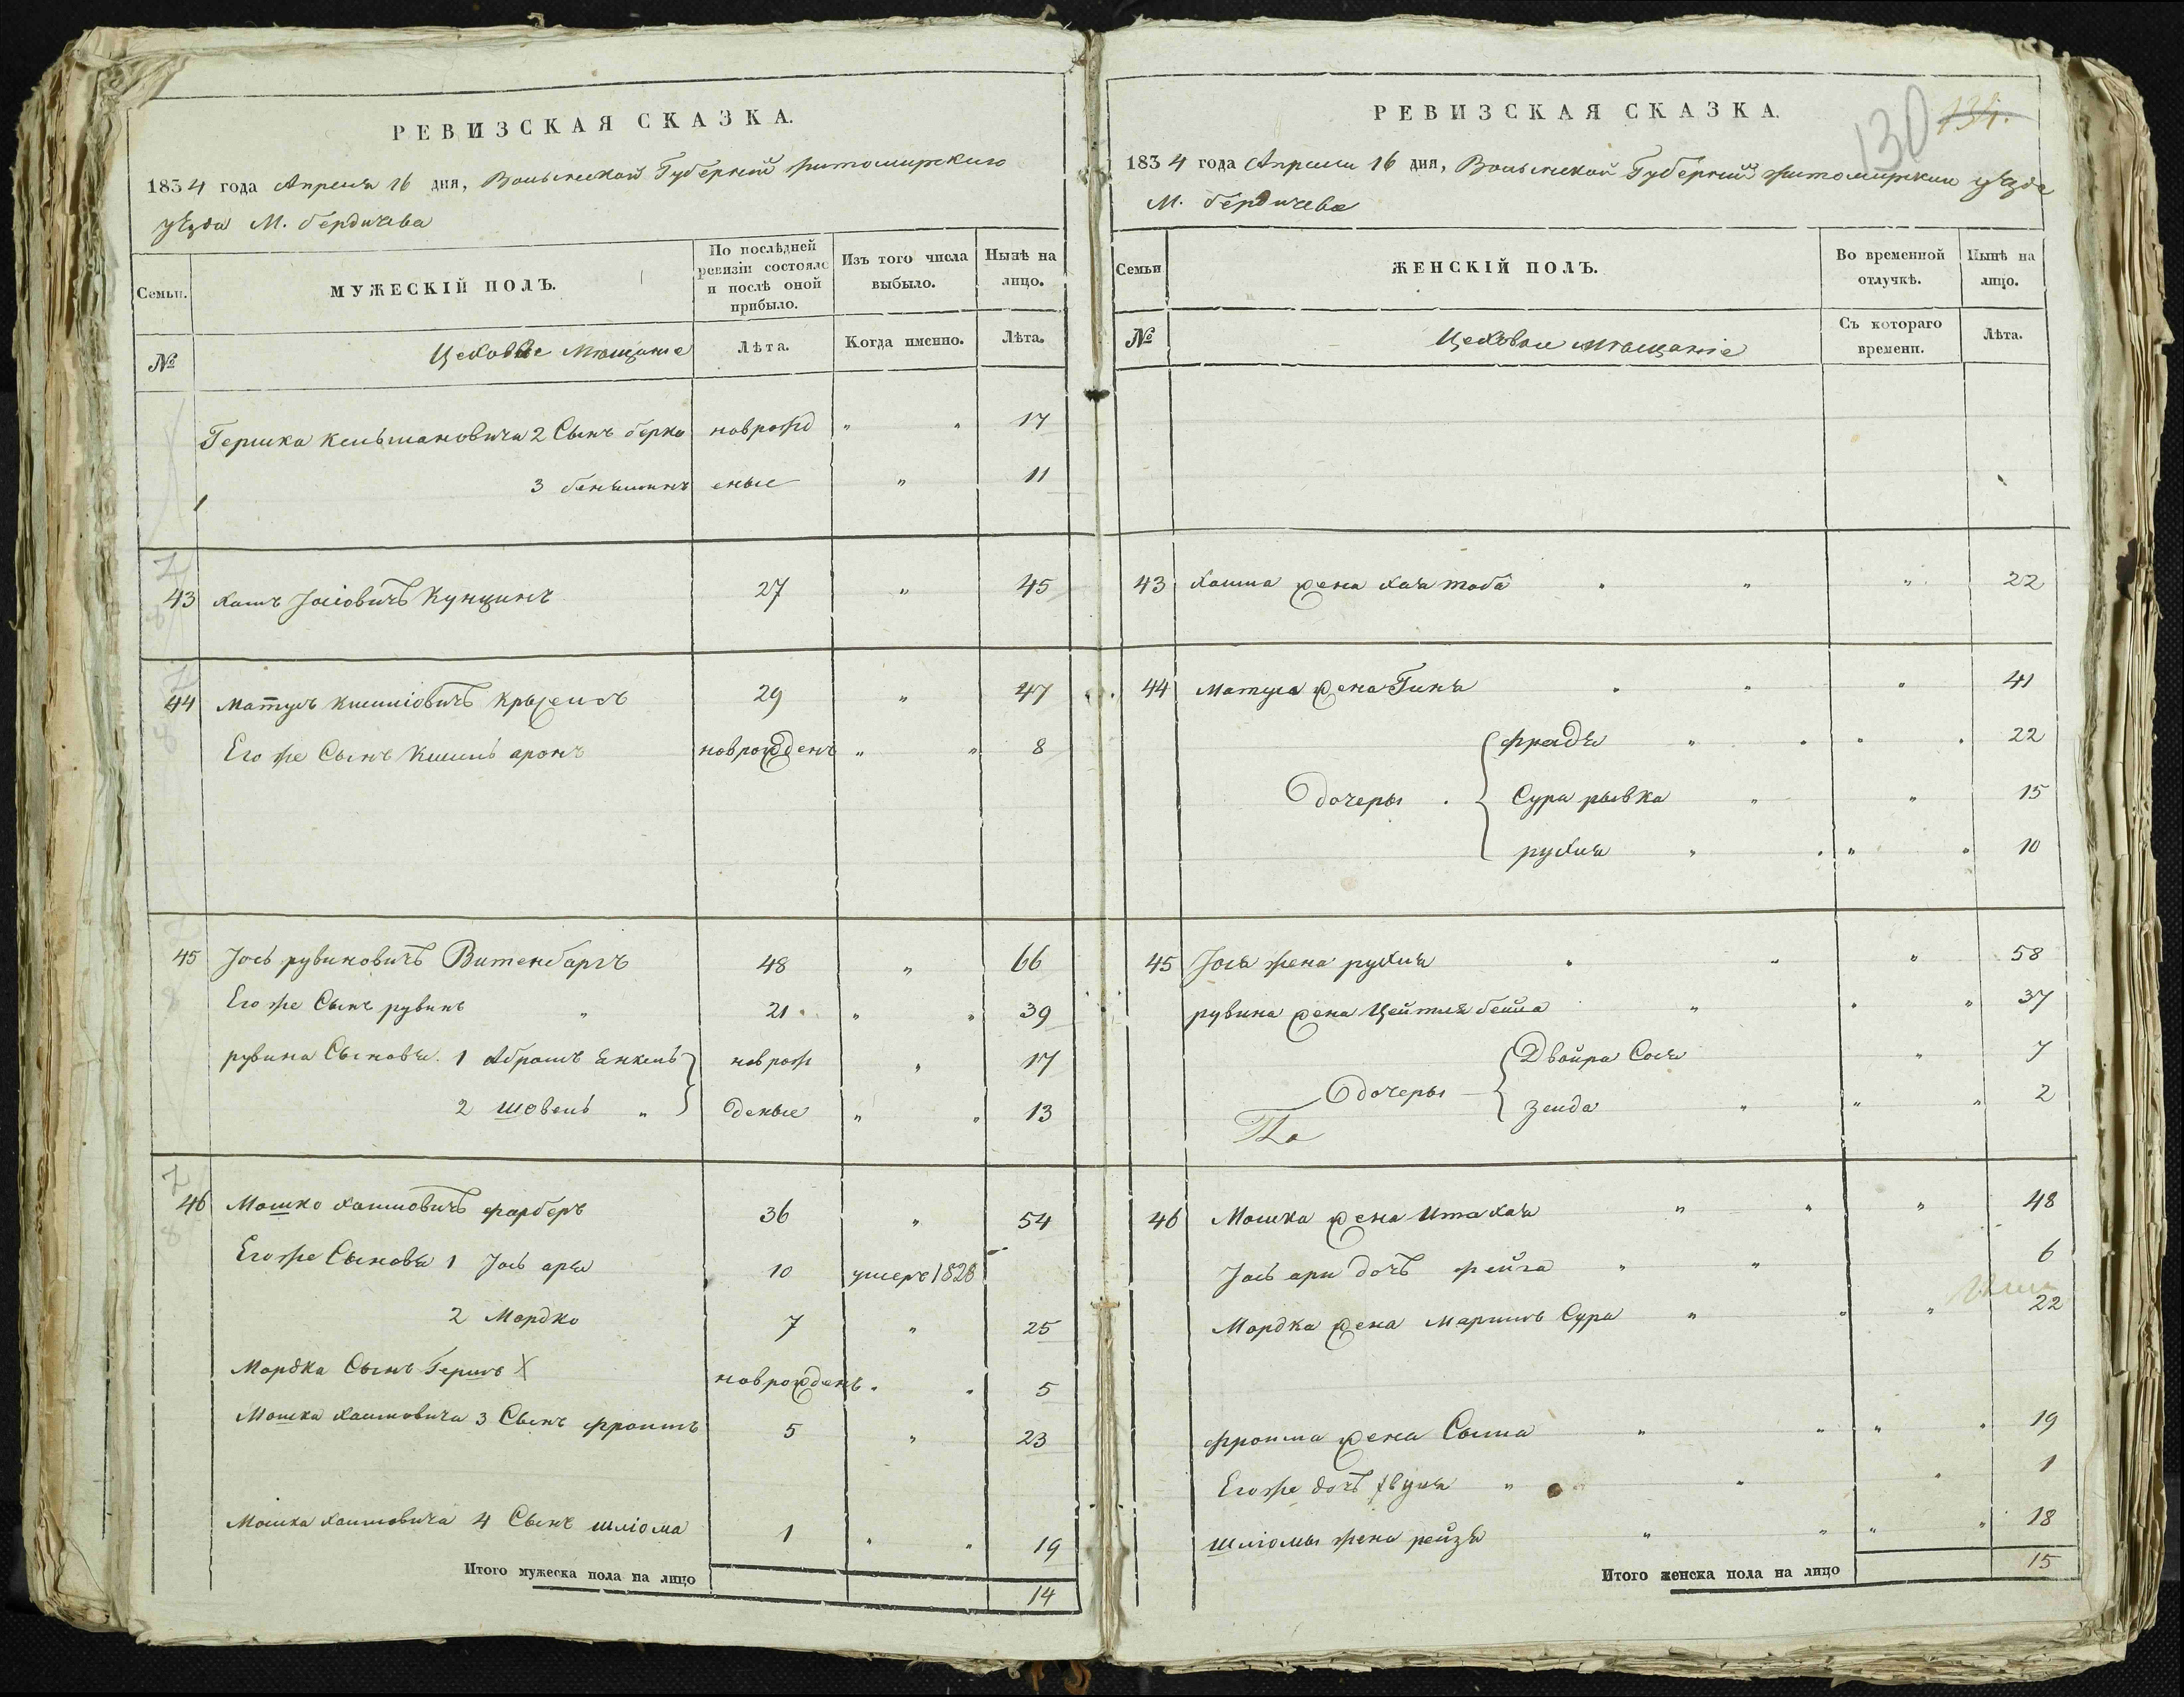 РЕВИЗСКАЯ СКАЗКА.
1834 года Апреля 16 дня, Волынской Губерній житомирского
уѣзда М. бердичева
Семьи.
МУЖЕСКІЙ ПОЛЪ.
По послѣдней ревизіи состояло и послѣ оной прибыло.
Изъ того числа выбыло.
Нынѣ на лицо.
№
Цеховые мѣщане
Лѣта.
Когда именно.
Лѣта.
Гершка кельмановича 2 Сынъ берко новрожд " " 17
3 беньяминъ еные " 11
43 хаимъ Іосіовичъ Кунцинъ 27 " 45
44 матусъ кишліовичъ 29 " 47
Его же Сынъ Кишиль аронъ новрожденъ " " 8
45 Іось рувиновичъ Витенбаргъ 48 " 66
Его же Сынъ рувинъ " 21 " " 39
рувина Сыновья. 1 Абрамъ янкель новрож " 17
2 шовель " деные " " 13
46 Мошко хаимовичъ фарберъ 36 " 54
Его же Сыновья 1 Іось арья 10 умеръ 1828
2 Мордко 7 " 25
Мордка Сынъ Гершъ X новрожденъ " " 5
Мошка хаимовича 3 Сынъ фроимъ 5 " 23
Мошка хаимовича 4 Сынъ шліома 1 " " 19
Итого мужеска пола на лицо 14
РЕВИЗСКАЯ СКАЗКА.
130 134.
1834 года Апреля 16 дня, Волынской Губерній житомирскаи уѣзда
М. бердичева
Семьи
ЖЕНСКІЙ ПОЛЪ.
Во временной отлучкѣ.
Нынѣ на лицо.
№
Цеховые мѣщаніе
Съ котораго времени.
Лѣта.
43 хаима жена хая тоба " " " 22
44 матуса жена Гиня " " " 41
дочеры
фрадя " " " " 22
Сура рывка " " 15
рухля " " " " 10
45 Іося жена рухля " " " 58
рувина жена Цейтля бейла " " " 37
дочеры
Двойра Сося " 7
Зелда " " " 2
46 Мошка жена Ита хая " " " 48
Іось ари дочь фейга " " 6
Мордка жена Сура " " " 22
фроима жена Сома " " " " 19
Его же дочь " " " 1
шліомы жена рейзя " " " " 18
Итого женска пола на лицо 15